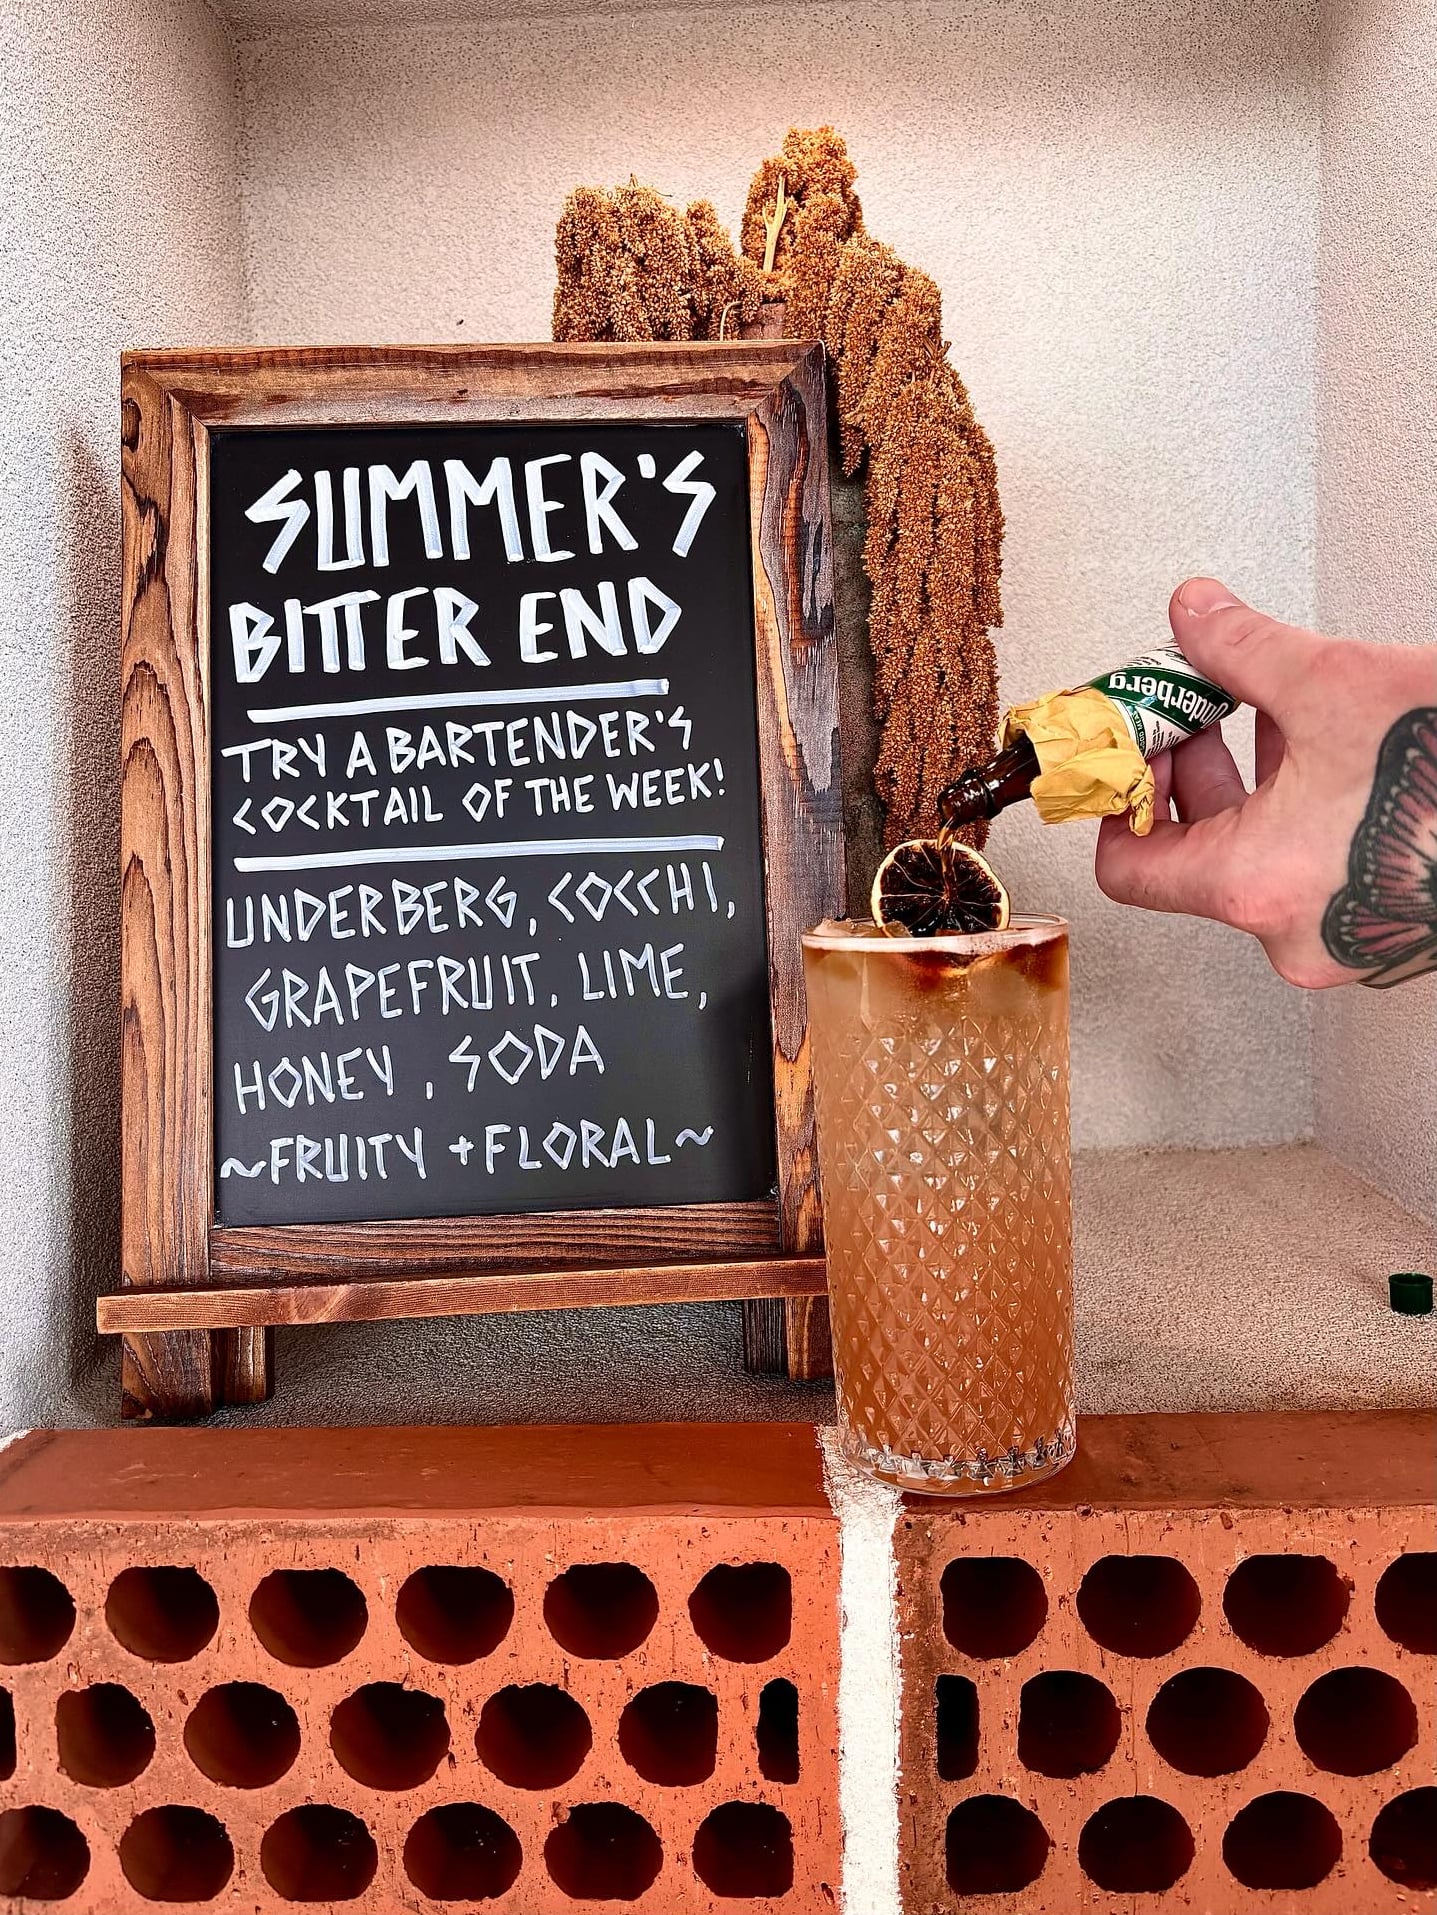 SUMMER'S
BITTER END
TRY A BARTENDER'S
COCKTAIL OF THE WEEK!
UNDERBERG, COCCHI,
GRAPEFRUIT, LIME,
HONEY, SODA
~FRUITY + FLORAL~
Underberg